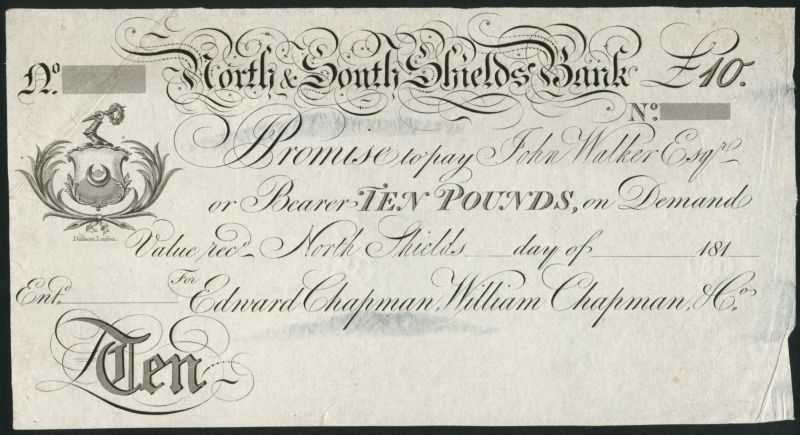 Nº. North & South Shields Bank £10.
Nº.
Promise to pay John Walker Esqre
or Bearer TEN POUNDS, on Demand
Value recd North Shields day of 181
For Edward Chapman, William Chapman, & Co.
Entd
Ten